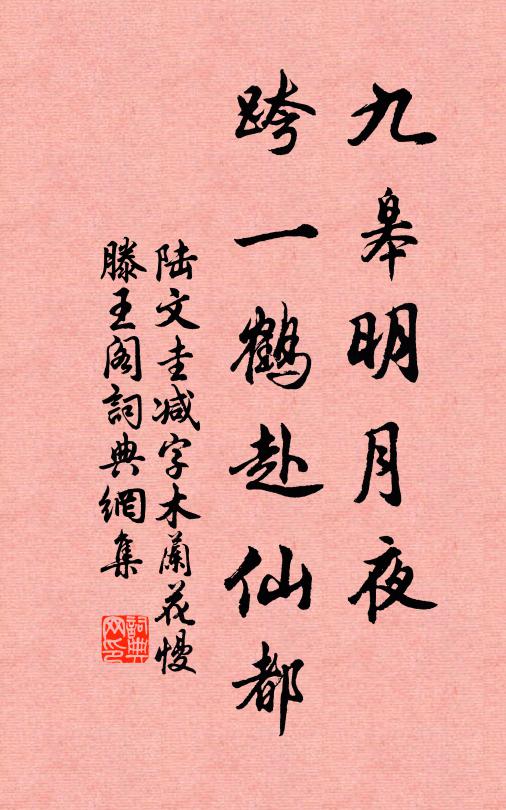 九皋明月夜
跨一鶴赴仙都
陆文圭减字木蘭花慢
滕王阁詞典網集
詞典网印